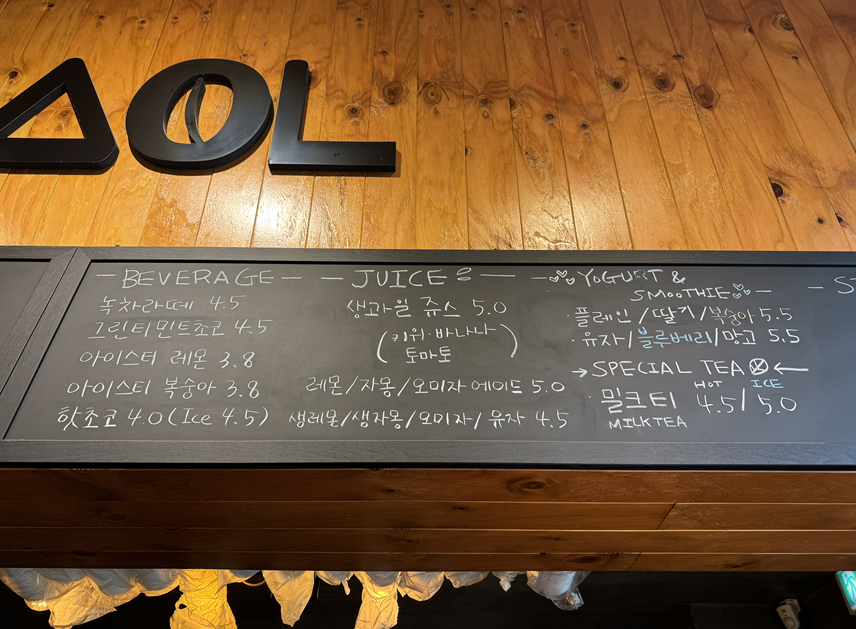 OL
BEVERAGE
녹차라떼 4.5
그린티민트초코 4.5
아이스티 레몬 3.8
아이스티 복숭아 3.8
핫초코 4.0 (Ice 4.5)
JUICE
생과일 쥬스 5.0
(키위·바나나
토마토)
레몬/자몽/오미자에이드 5.0
생레몬/생자몽/오미자/유자 4.5
YOGURT &
SMOOTHIE
·플레인/딸기/복숭아 5.5
·유자/블루베리/망고 5.5
→SPECIAL TEA←
HOT ICE
·밀크티 4.5/5.0
MILKTEA